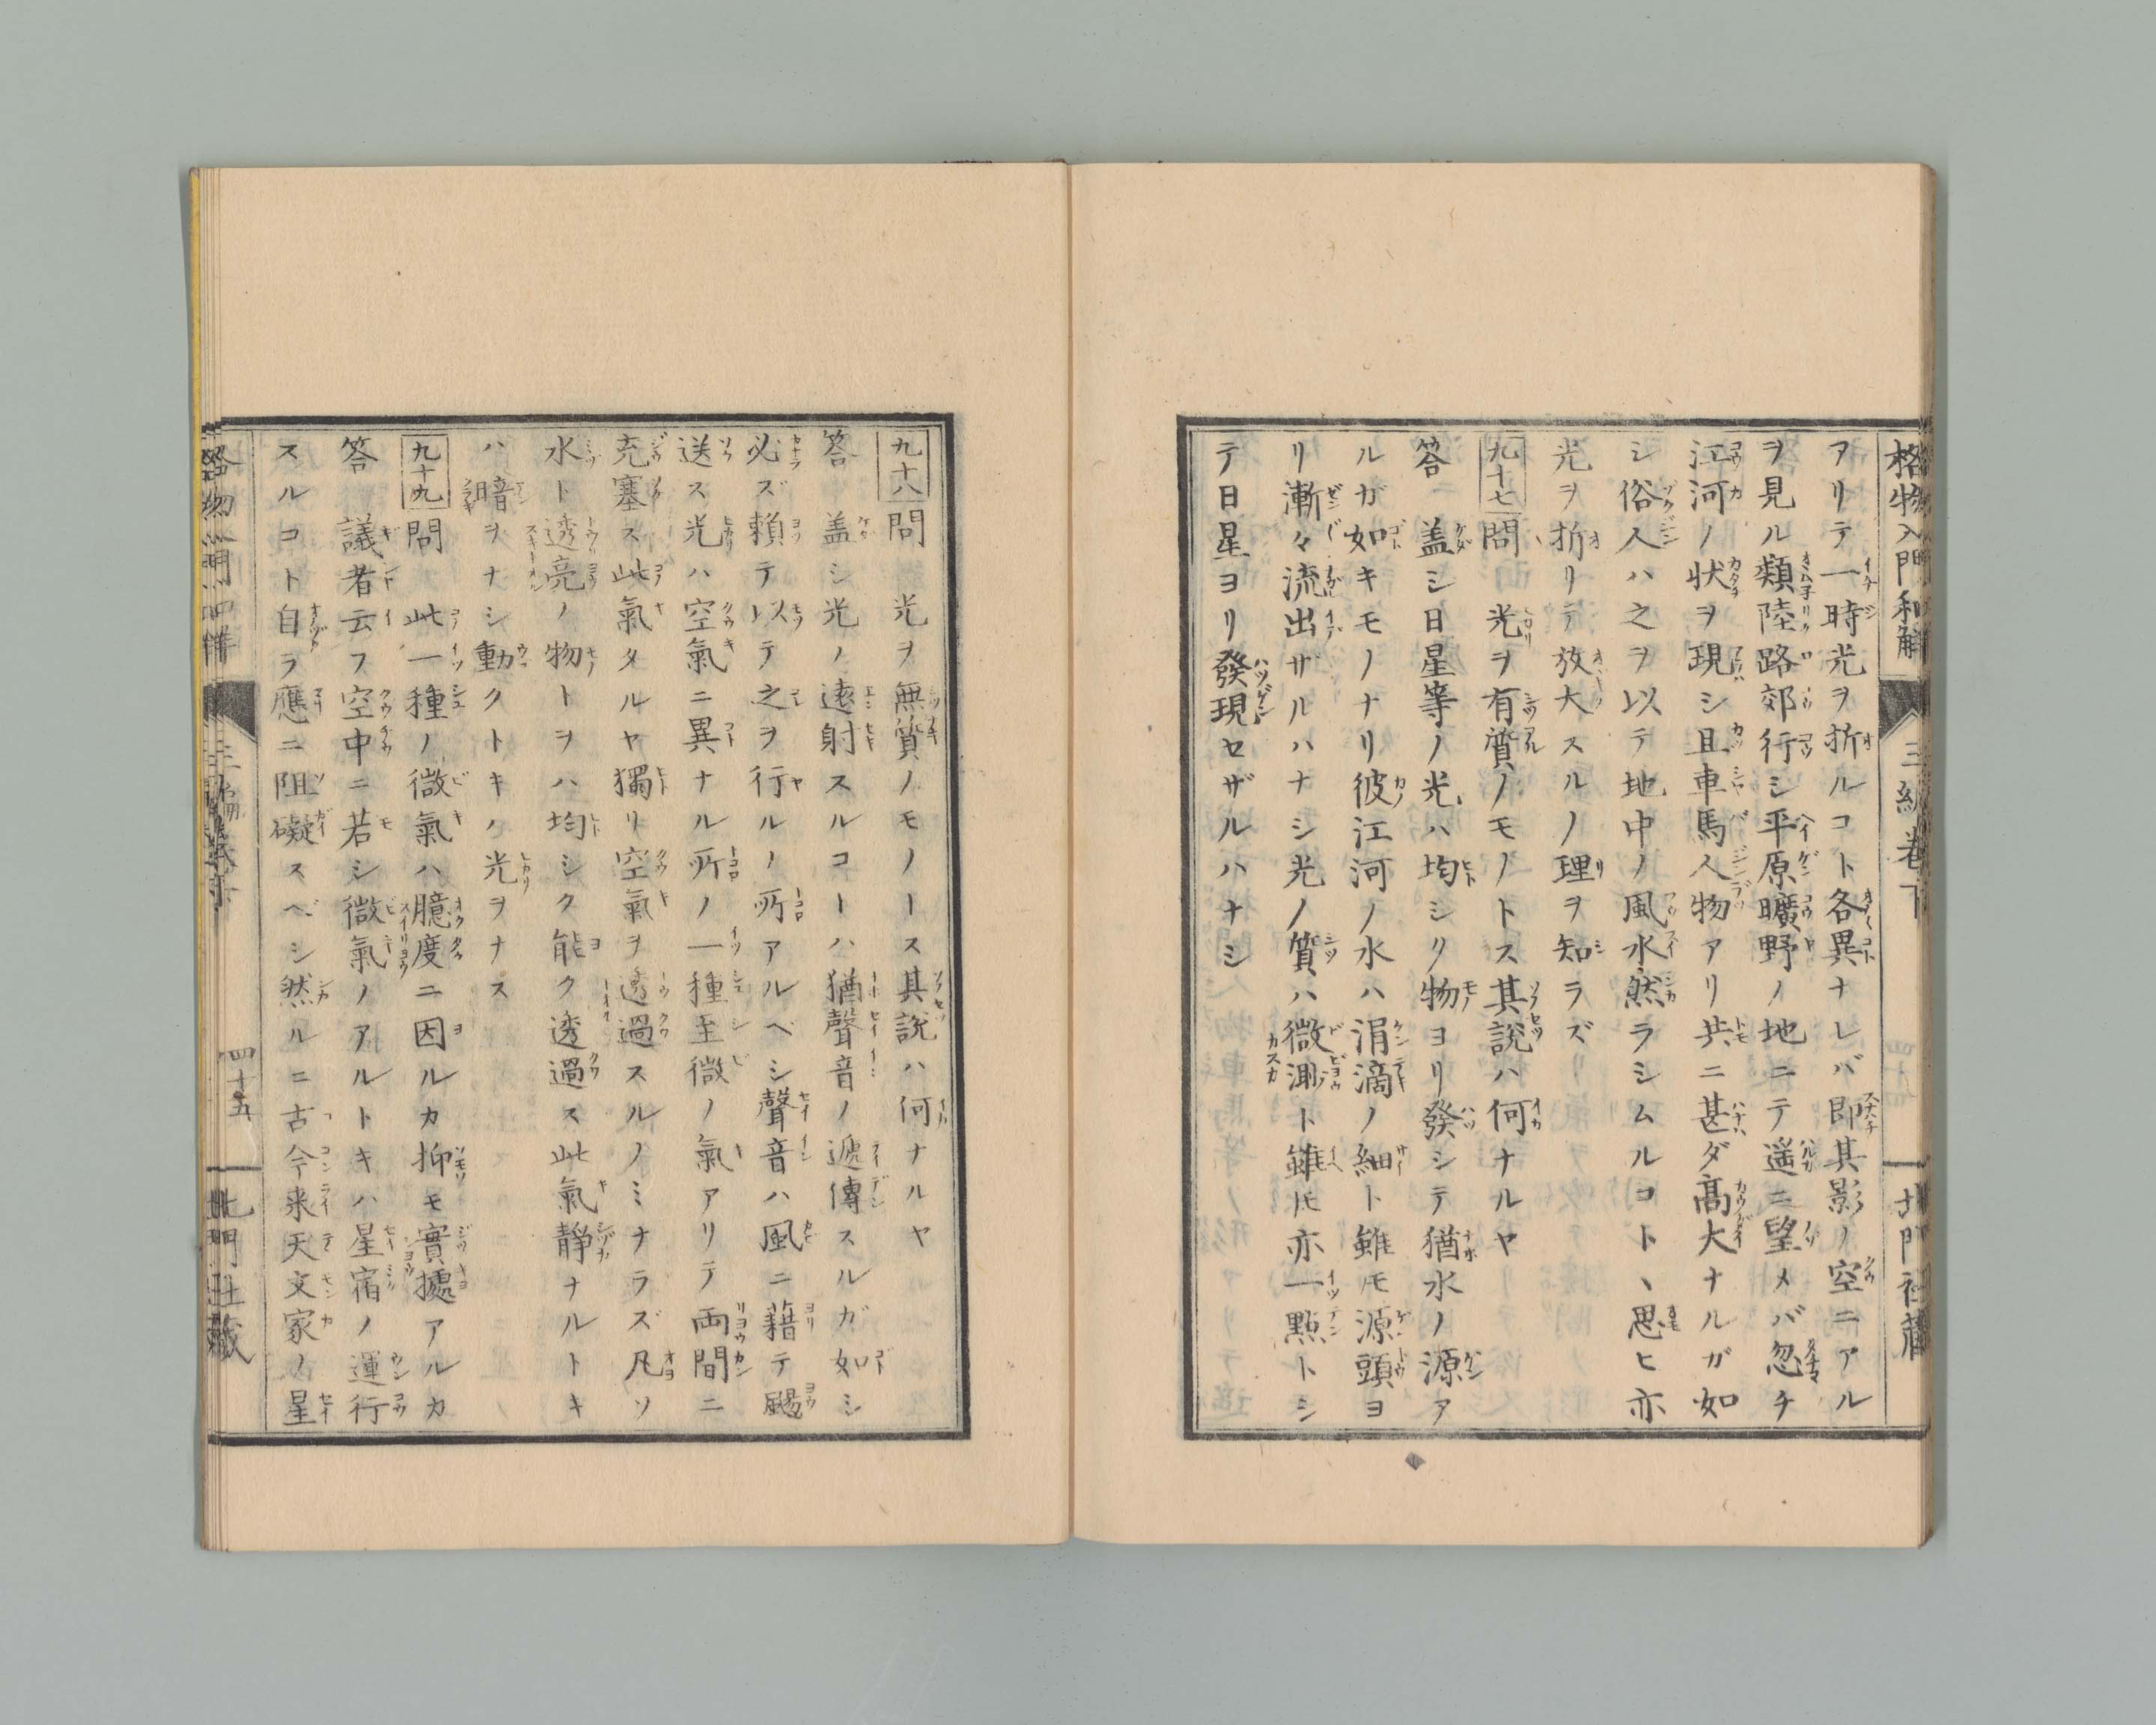 格物入門和解 三編巻下 北門社藏
アリテ一時光ヲ折ルコト各異ナレバ即其影ノ空ニアル
ヲ見ル類陸路郊行シ平原曠野ノ地ニテ遥ニ望メバ忽チ
江河ノ状ヲ現シ且車馬人物アリ共ニ甚ダ髙大ナルガ如
シ俗人ハ之ヲ以テ地中ノ風水然ラシムルコトヽ思ヒ亦
光ヲ折リテ放大スルノ理ヲ知ラズ
九十七 問 光ヲ有質ノモノトス其說ハ何ナルヤ
答 盖シ日星等ノ光ハ均シク物ヨリ發シテ猶水ノ源ア
ルガ如キモノナリ彼江河ノ水ハ涓滴ノ細ト雖モ源頭ヨ
リ漸々流出ザルハナシ光ノ質ハ微渺ト雖モ亦一點トシ
テ日星ヨリ發現セザルハナシ
九十八 問 光ヲ無質ノモノトス其說ハ何ナルヤ
答 盖シ光ノ遠射スルコトハ猶聲音ノ遞傳スルガ如シ
必ズ賴テ以テ之ヲ行ルノ所アルベシ聲音ハ風ニ藉テ颺
送ス光ハ空氣ニ異ナル所ノ一種至微ノ氣アリテ両間ニ
充塞ス此氣タルヤ獨リ空氣ヲ透過スルノミナラズ凡ソ
水ト透亮ノ物トヲハ均シク能ク透過ス此氣静ナルトキ
ハ暗ヲナシ動クトキハ光ヲナス
九十九 問 此一種ノ微氣ハ臆度ニ因ルカ抑モ實據アルカ
答 議者云フ空中ニ若シ微氣ノアルトキハ星宿ノ運行
スルコト自ラ應ニ阻礙スベシ然ルニ古今来天文家ノ星
格物入門和解 三編巻下 四十五 北門社藏